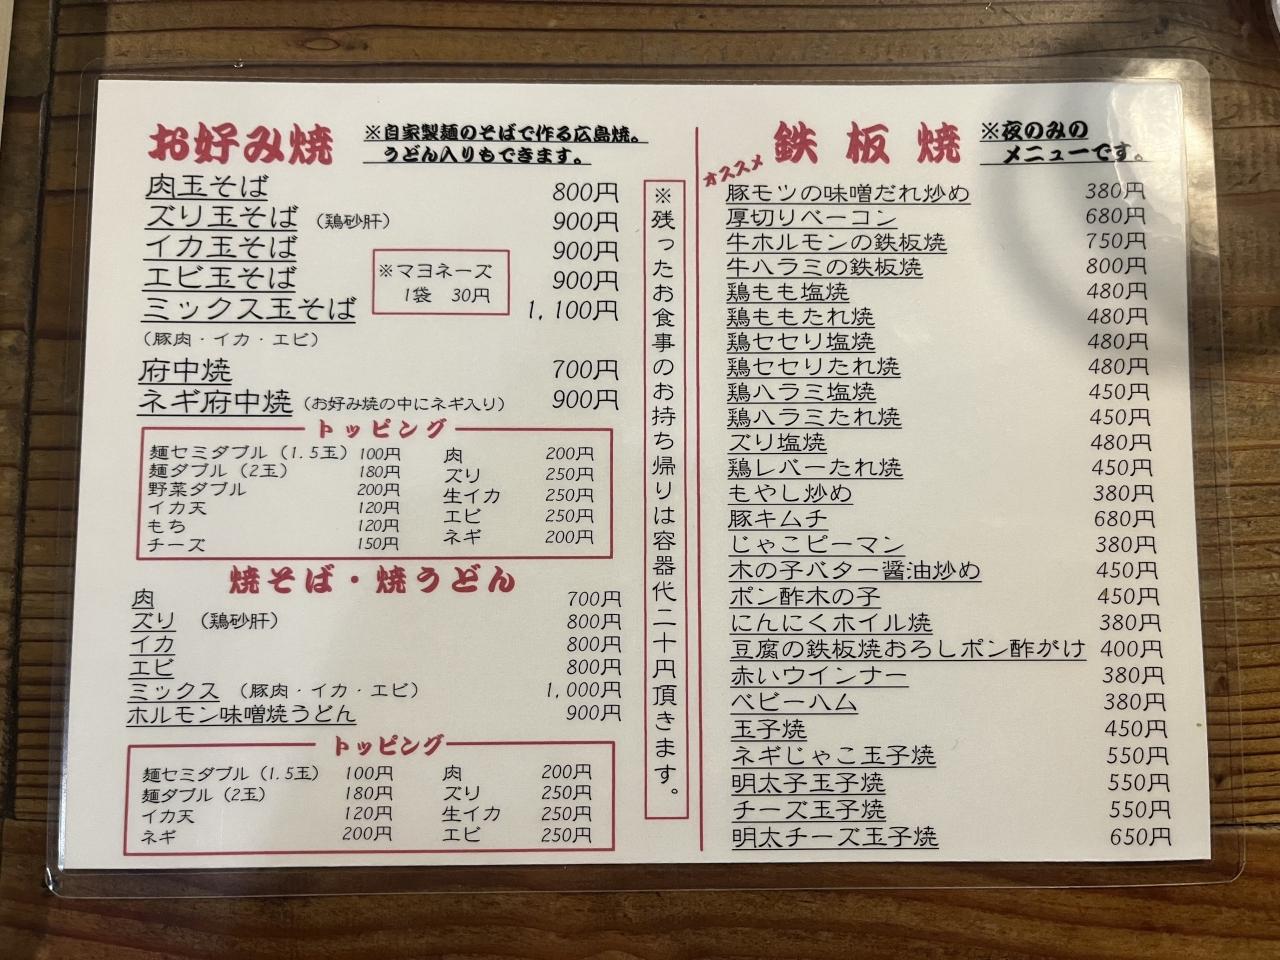 お好み焼
※自家製麺のそばで作る広島焼。
うどん入りもできます。
肉玉そば 800円
ズリ玉そば （鶏砂肝） 900円
イカ玉そば 900円
エビ玉そば 900円
ミックス玉そば 1,100円
（豚肉・イカ・エビ）
※マヨネーズ
1袋 30円
府中焼 700円
ネギ府中焼 （お好み焼の中にネギ入り） 900円
トッピング
麺セミダブル（1.5玉） 100円 肉 200円
麺ダブル（2玉） 180円 ズリ 250円
野菜ダブル 200円 生イカ 250円
イカ天 120円 エビ 250円
もち 120円 ネギ 200円
チーズ 150円
焼そば・焼うどん
肉 700円
ズリ （鶏砂肝） 800円
イカ 800円
エビ 800円
ミックス （豚肉・イカ・エビ） 1,000円
ホルモン味噌焼うどん 900円
トッピング
麺セミダブル（1.5玉） 100円 肉 200円
麺ダブル（2玉） 180円 ズリ 250円
イカ天 120円 生イカ 250円
ネギ 200円 エビ 250円
※残ったお食事のお持ち帰りは容器代二十円頂きます。
鉄板焼
※夜のみの
メニューです。
オススメ
豚モツの味噌だれ炒め 380円
厚切りベーコン 680円
牛ホルモンの鉄板焼 750円
牛ハラミの鉄板焼 800円
鶏もも塩焼 480円
鶏ももたれ焼 480円
鶏セセリ塩焼 480円
鶏セセリたれ焼 480円
鶏ハラミ塩焼 450円
鶏ハラミたれ焼 450円
ズリ塩焼 480円
鶏レバーたれ焼 450円
もやし炒め 380円
豚キムチ 680円
じゃこピーマン 380円
木の子バター醤油炒め 450円
ポン酢木の子 450円
にんにくホイル焼 380円
豆腐の鉄板焼おろしポン酢がけ 400円
赤いウインナー 380円
ベビーハム 380円
玉子焼 450円
ネギじゃこ玉子焼 550円
明太子玉子焼 550円
チーズ玉子焼 550円
明太チーズ玉子焼 650円